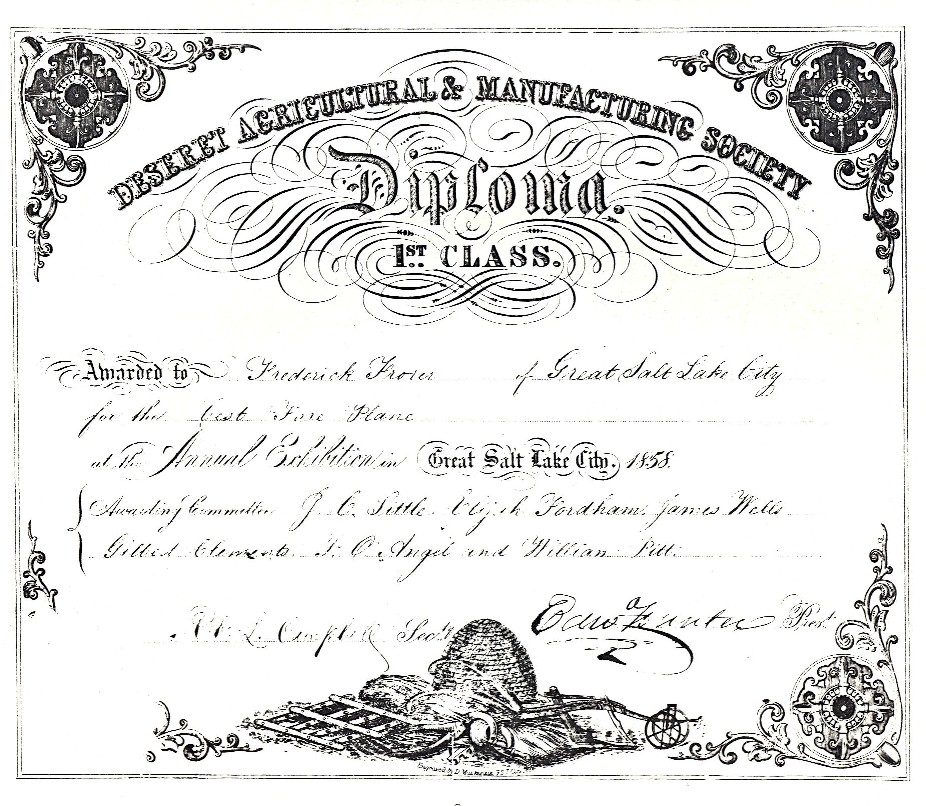 DESERET AGRICULTURAL & MANUFACTURING SOCIETY
Diploma.
1ST. CLASS.
Awarded to Frederick Froser of Great Salt Lake City
for the best Fore Plane
at the Annual Exhibition in Great Salt Lake City. 1858.
Awarding Committee J. C. Little Elijah Fordham, James Wells
Gilbed Clements T. O. Angel and William Pitt.
L. Campbell Secty Edwd Hunter Prest.
Engraved by D.